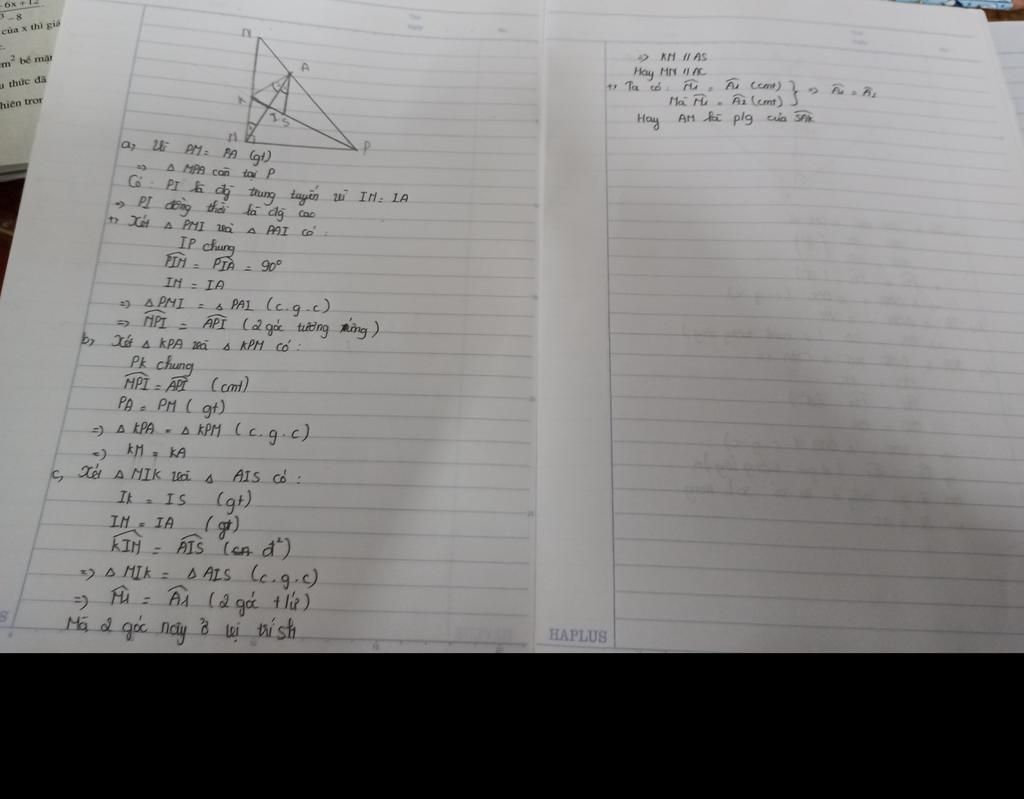 6x+12
3-8
của x thì giá
m² bề mặt
u thức đã
hiên tron
N
A
K
I S
M
P
a, Vì PM = PA (gt)
=> △ MPA cân tại P
Có: PI là đg trung tuyến vì IM = IA
=> PI đồng thời là đg cao
+) Xét △ PMI và △ PAI có:
IP chung
PIM = PIA = 90°
IM = IA
=> △ PMI = △ PAI (c.g.c)
=> MPI = API (2 góc tương ứng)
b, Xét △ KPA và △ KPM có:
PK chung
MPI = API (cmt)
PA = PM (gt)
=> △ KPA = △ KPM (c.g.c)
=> KM = KA
c, Xét △ MIK và △ AIS có:
IK = IS (gt)
IM = IA (gt)
KIM = AIS (đ²)
=> △ MIK = △ AIS (c.g.c)
=> M1 = A1 (2 góc t/ứ)
Mà 2 góc này ở vị trí slt
=> KM // AS
Hay MN // AC
+) Ta có: M1 = A1 (cmt)
Mà M1 = A2 (cmt) } => A1 = A2
Hay AM là p/g của SAK
HAPLUS